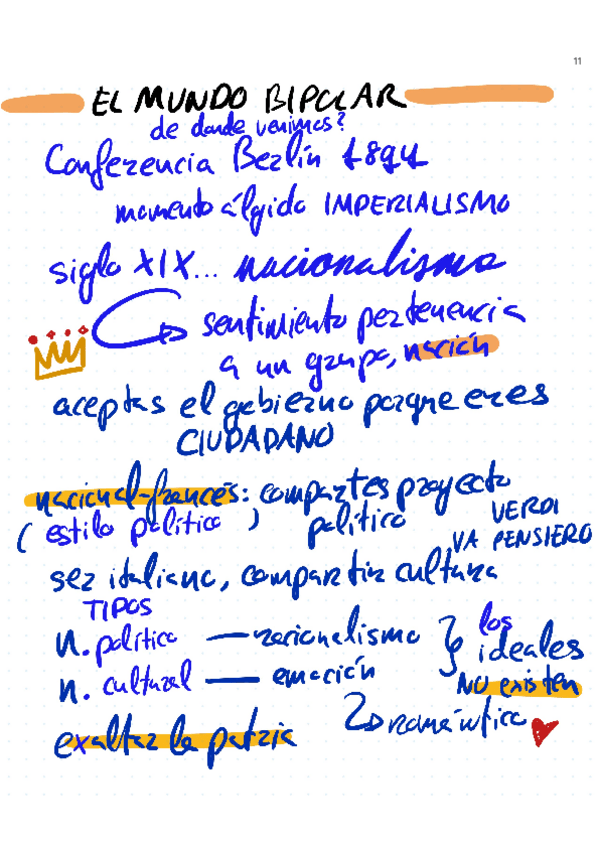 11
EL MUNDO BIPOLAR
de donde venimos?
Conferencia Berlín 1894
momento álgido IMPERIALISMO
siglo XIX... nacionalismo
sentimiento pertenencia
a un grupo, nación
aceptas el gobierno porque eres
CIUDADANO
nacional-francés: compartes proyecto
(estilo político) político
VERDI
VA PENSIERO
ser italiano, compartir cultura
TIPOS
n. político — racionalismo
n. cultural — emoción
los ideales
NO existen
romántico
exaltar la patria